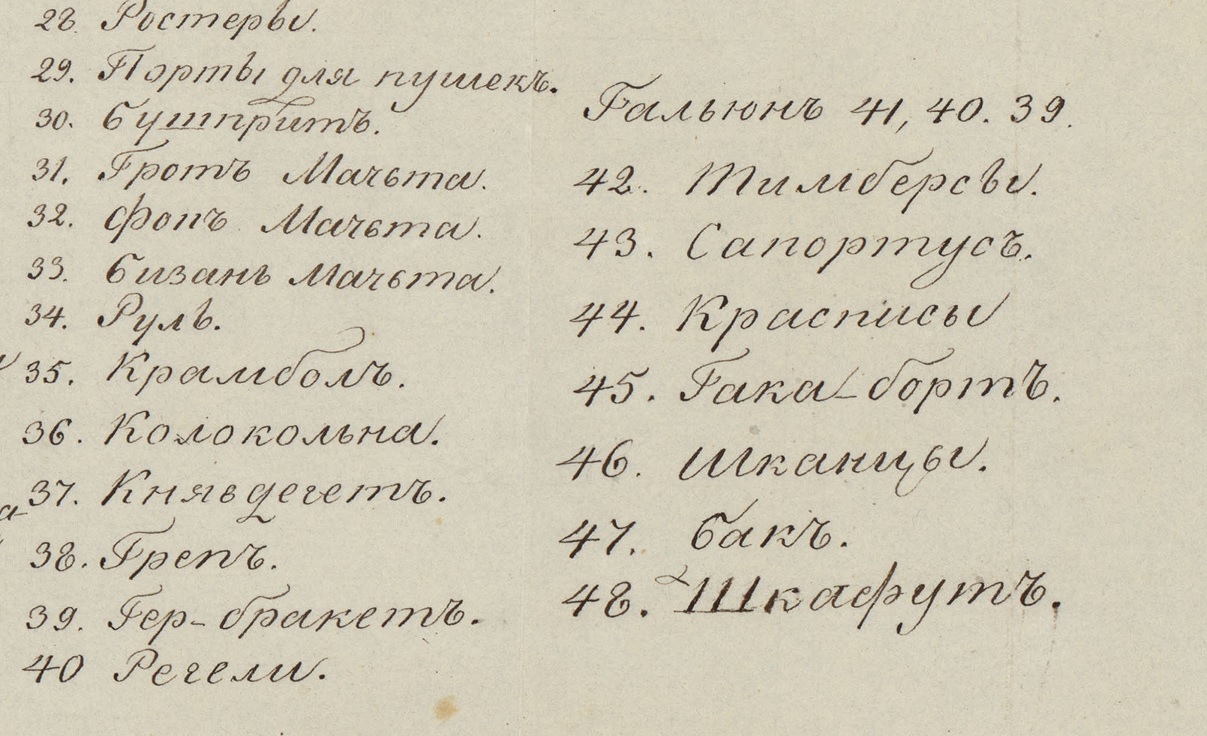 28. Ростеры.
29. Порты для пушекъ.
30. Бушпритъ.
31. Гротъ Мачьта.
32. Фокъ Мачьта.
33. Бизань Мачьта.
34. Руль.
35. Крамболъ.
36. Колокольна.
37. Княвдегетъ.
38. Грепъ.
39. Гер-бракетъ.
40 Регели.
Гальюнъ 41, 40. 39.
42. Тимберсы.
43. Сапортусъ.
44. Красписы
45. Гака-бортъ.
46. Шканцы.
47. Бакъ.
48. Шкафутъ.